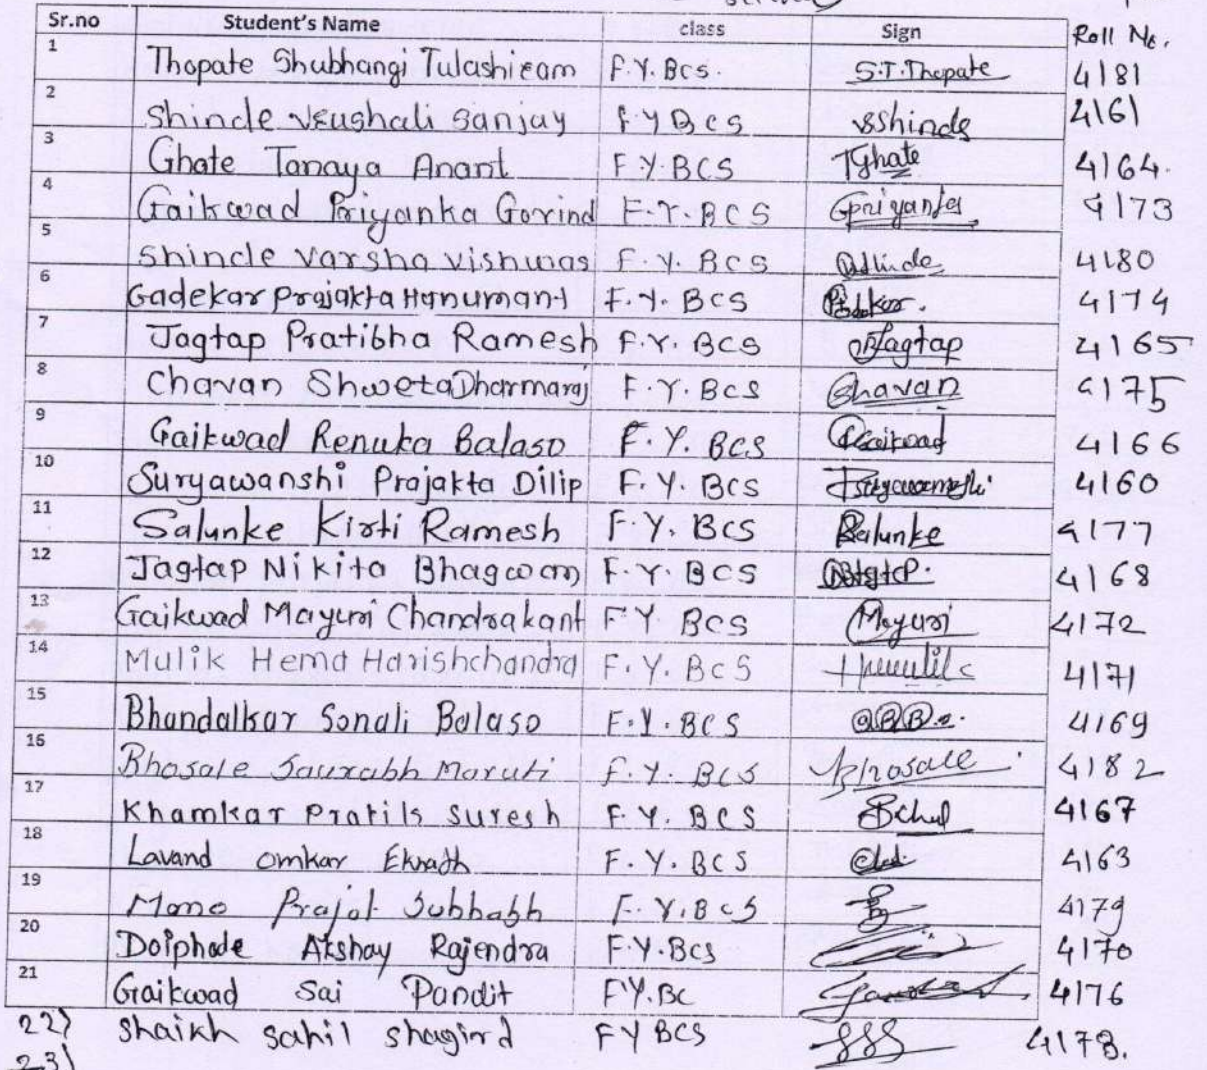 Sr.no Student's Name class Sign Roll No.
1 Thopate Shubhangi Tulashiram F.Y. Bcs. S.T.Thopate 4181
2 Shinde Vrushali Sanjay F Y B c s vsshinde 4161
3 Ghate Tanaya Anant F Y. BCS TGhate 4164.
4 Gaikwad Priyanka Govind F.Y. BCS Gpriyanka 4173
5 Shinde Varsha Vishwas F. Y. BCS 4180
6 Gadekar Prajakta Hanumant F. Y. BCS 4174
7 Jagtap Pratibha Ramesh F.Y. BCS Jagtap 4165
8 Chavan Shweta Dharmaraj F.Y. BCS Chavan 4175
9 Gaikwad Renuka Balaso F. Y. BCS Gaikwad 4166
10 Suryawanshi Prajakta Dilip F. Y. BCS 4160
11 Salunke Kirti Ramesh F. Y. BCS Salunke 4177
12 Jagtap Nikita Bhagwan F. Y. BCS 4168
13 Gaikwad Mayuri Chandrakant F Y. BCS Mayuri 4172
14 Mulik Hema Harishchandra F. Y. BCS 4171
15 Bhandalkar Sonali Balaso F.Y. BCS 4169
16 Bhosale Saurabh Maruti F. Y. BCS Bhosale 4182
17 Khamkar Pratik Suresh F. Y. BCS 4167
18 Lavand Omkar Eknath F. Y. BCS 4163
19 Mane Prajot Subhash F. Y. BCS 4179
20 Doiphode Akshay Rajendra F.Y.BCS 4170
21 Gaikwad Sai Pandit FY.BC 4176
22) Shaikh Sahil Shagird F Y BCS SSS 4178.
23)